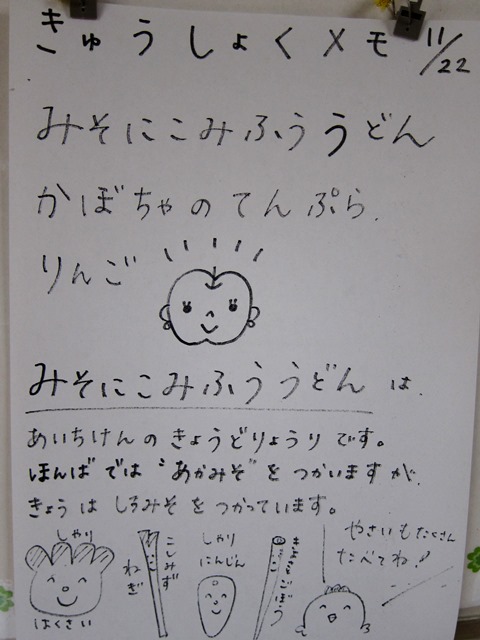 きゅうしょくメモ 11/22
みそにこみふううどん
かぼちゃのてんぷら
りんご
みそにこみふううどん は、
あいちけんの きょうどりょうり です。
ほんばでは "あかみそ" を つかいますが、
きょうは しろみそ を つかっています。
しゃり
はくさい
こしみず
ねぎ
しゃり
にんじん
ごぼう
やさいもたくさん
たべてね!